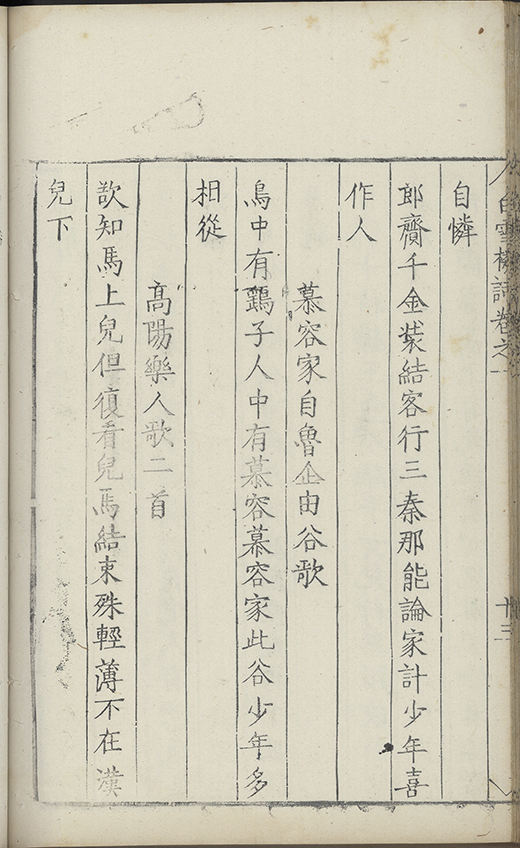 白雪樓詩卷之一
十三
自憐
郎齎千金裝結客行三秦那能論家計少年喜
作人
慕容家自魯企由谷歌
鳥中有鷂子人中有慕容慕容家此谷少年多
相從
高陽樂人歌二首
歆知馬上兒但復看兒馬結束殊輕薄不在漢
兒下